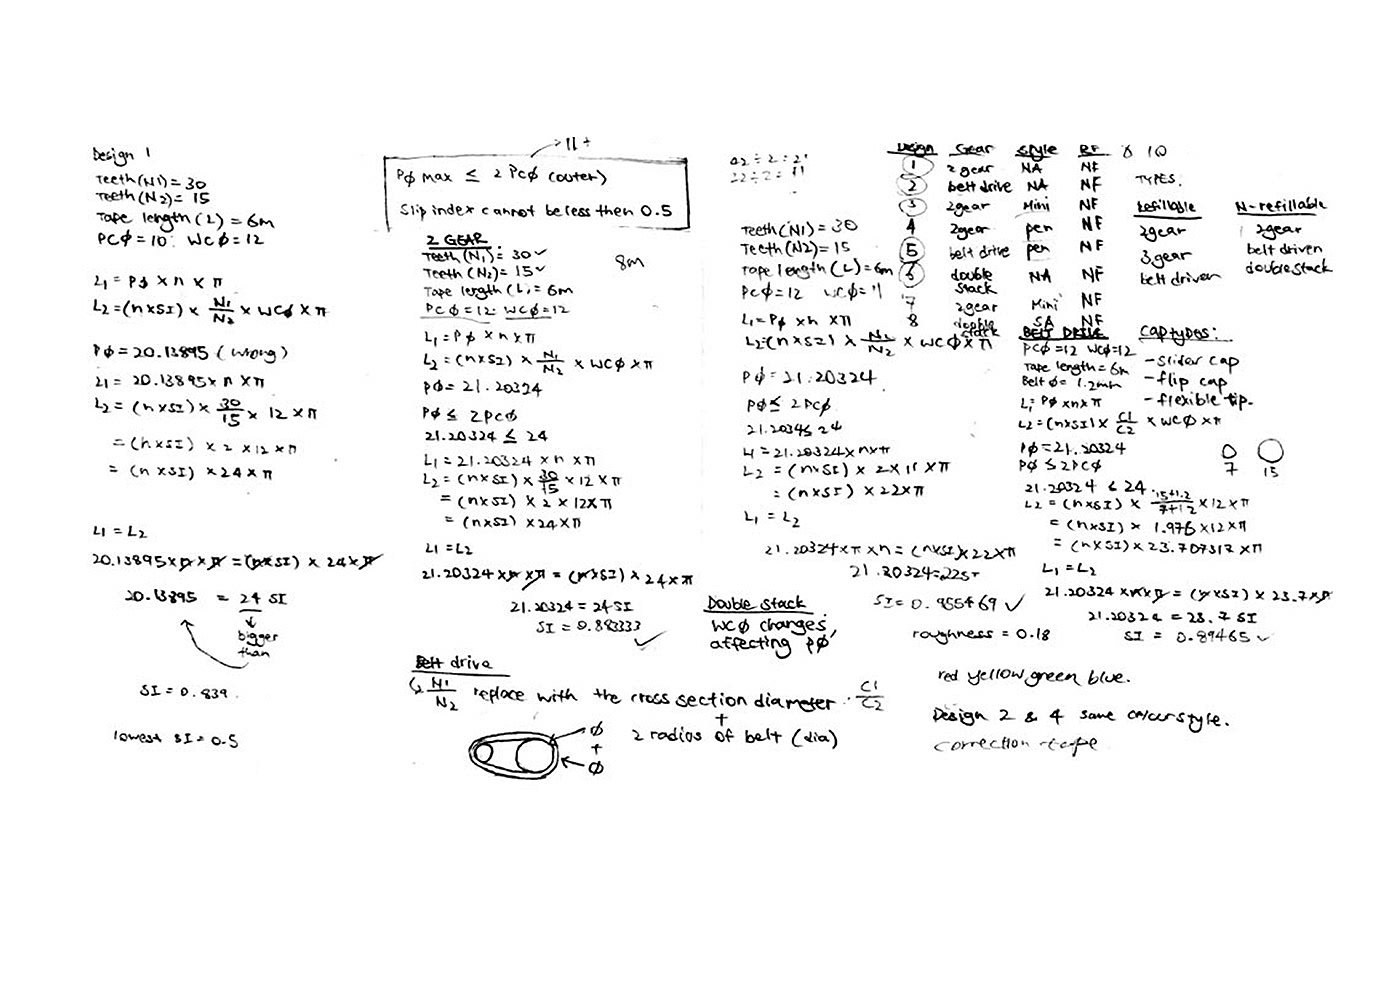 Design 1
Teeth (N1) = 30
Teeth (N2) = 15
Tape length (L) = 6m
PCϕ = 10 WCϕ = 12
L₁ = Pϕ × n × π
L₂ = (n×SI) × N1/N2 × WCϕ × π
Pϕ = 20.13895 (wrong)
L1 = 20.13895 × n × π
L₂ = (n×SI) × 30/15 × 12 × π
= (n×SI) × 2 × 12 × π
= (n×SI) × 24 × π
L₁ = L₂
20.13895 × n × π = (n×SI) × 24 × π
20.13895 = 24 SI
bigger
than
SI = 0.839
lowest SI = 0.5
Pϕ max ≤ 2 PCϕ (outer)
Slip index cannot be less then 0.5
2 GEAR
Teeth (N1) = 30 ✓
Teeth (N2) = 15 ✓
8m
Tape length (L) = 6m
PCϕ = 12 WCϕ = 12
L₁ = Pϕ × n × π
L₂ = (n×SI) × N1/N2 × WCϕ × π
Pϕ = 21.20324
Pϕ ≤ 2PCϕ
21.20324 ≤ 24
L₁ = 21.20324 × n × π
L₂ = (n×SI) × 30/15 × 12 × π
= (n×SI) × 2 × 12 × π
= (n×SI) × 24 × π
L1 = L2
21.20324 × n × π = (n×SI) × 24 × π
21.20324 = 24SI
SI = 0.883333 ✓
Belt drive
N1/N2 replace with the cross section diameter C1/C2
+
2 radius of belt (dia)
ϕ
+
ϕ
42 ÷ 2 = 21
22 ÷ 2 = 11
Teeth (N1) = 30
Teeth (N2) = 15
Tape length (L) = 6m
PCϕ = 12 WCϕ = 11
L₁ = Pϕ × n × π
L₂ = (n×SI) × N1/N2 × WCϕ × π
Pϕ = 21.20324
Pϕ ≤ 2PCϕ
21.2034 ≤ 24
L1 = 21.20324 × n × π
L₂ = (n×SI) × 2 × 11 × π
= (n×SI) × 22 × π
L₁ = L₂
21.20324 × π × n = (n×SI) × 22 × π
21.20324 = 22SI
SI = 0.955469 ✓
roughness = 0.18
Double stack
WCϕ changes
affecting Pϕ
Design Gear Style RF
1 2gear NA NF
2 belt drive NA NF
3 2gear Mini NF
4 2gear pen NF
5 belt drive pen NF
6 double stack NA NF
7 2gear Mini NF
8 double stack SA NF
8 10
TYPES:
Refillable N-refillable
2gear 2gear
3gear belt driven
belt driven double stack
BELT DRIVE
PCϕ = 12 WCϕ = 12
Tape length = 6m
Belt ϕ = 1.2mm
L₁ = Pϕ × n × π
L₂ = (n×SI) × C1/C2 × WCϕ × π
Pϕ = 21.20324
Pϕ ≤ 2PCϕ
21.20324 ≤ 24
L₂ = (n×SI) × 15+1.2/7+1.2 × 12 × π
= (n×SI) × 1.976 × 12 × π
= (n×SI) × 23.707317 × π
L₁ = L₂
21.20324 × n × π = (n×SI) × 23.7 × π
21.20324 = 23.7 SI
SI = 0.89465 ✓
Cap types:
- slider cap
- flip cap
- flexible tip.
7 15
red yellow green blue.
Design 2 & 4 same colour style.
correction tape